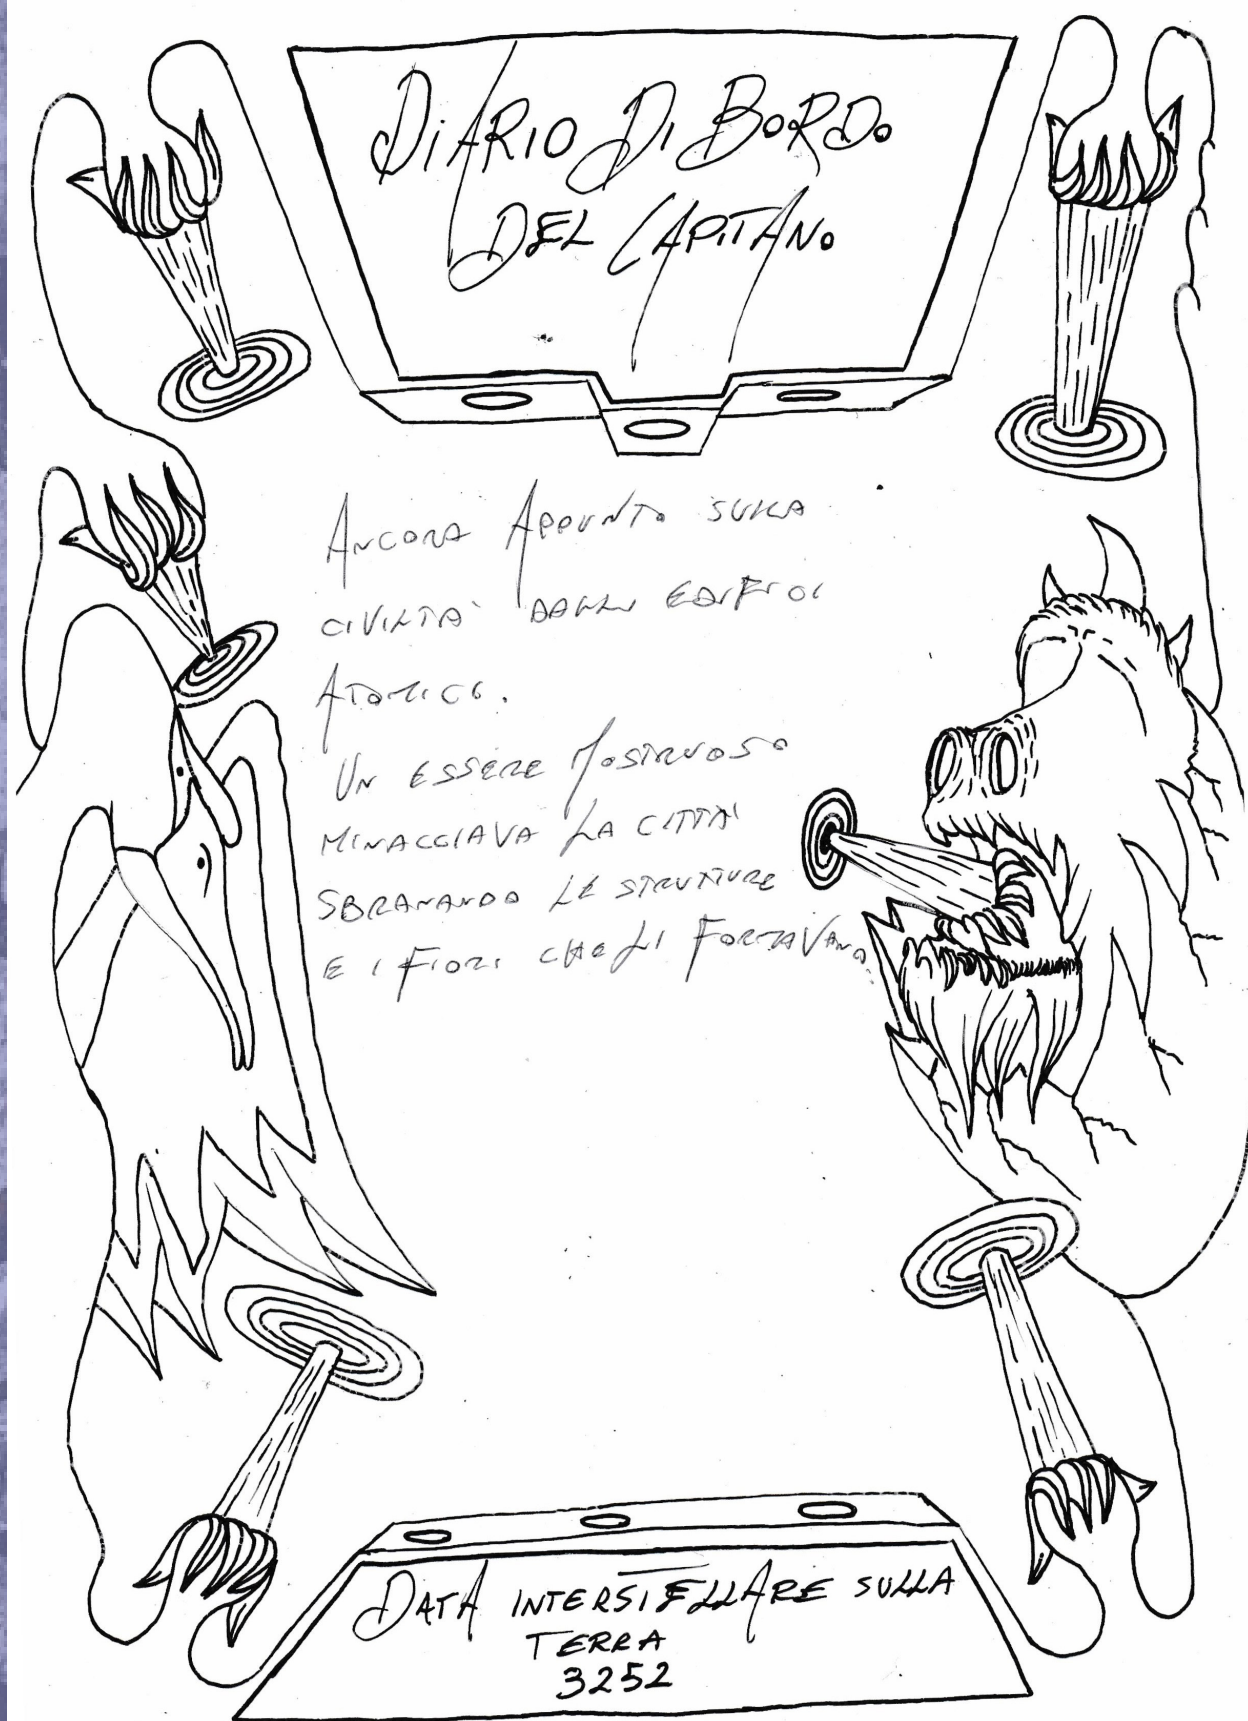 DIARIO DI BORDO
DEL CAPITANO
ANCORA APPUNTO SULLA
CIVILTA' DAGLI EDIFICI
ATOMICI.
UN ESSERE MOSTRUOSO
MINACCIAVA LA CITTA'
SBRANANDO LE STRUTTURE
E I FIORI CHE LI
DATA INTERSTELLARE SULLA
TERRA
3252